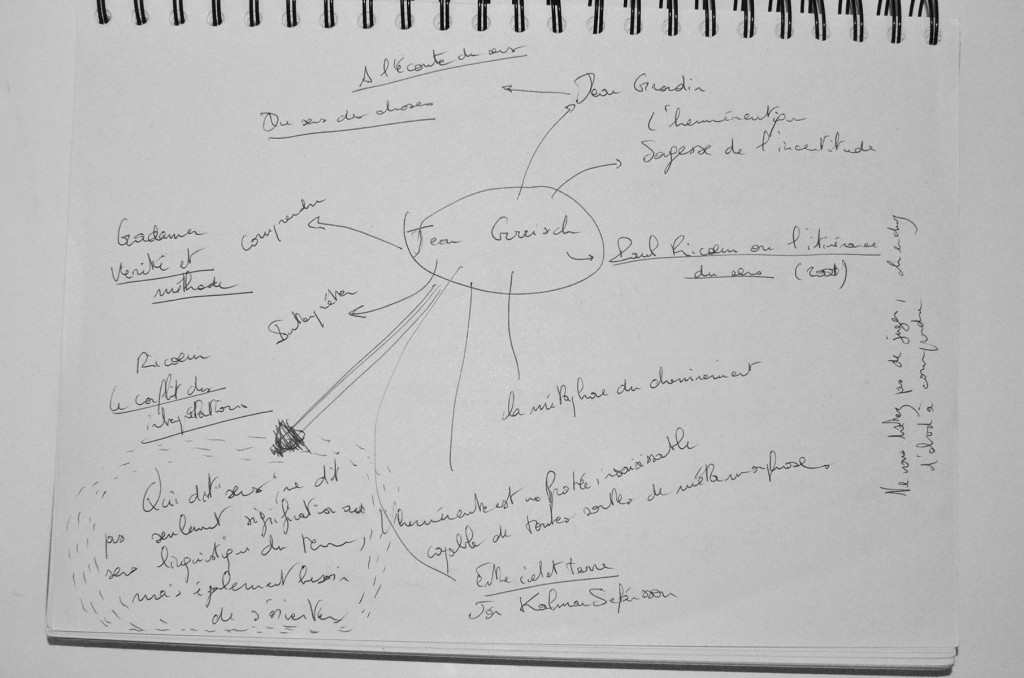 A l'écoute du sens
Du sens des choses
Jean Grondin
L'herméneutique
Sagesse de l'incertitude
Jean Greisch
Paul Ricœur ou l'itinérance
du sens (2001)
comprendre
Gadamer
Vérité et
méthode
Interpréter
Ricœur
Le conflit des
interprétations
la métaphore du cheminement
Qui dit sens, ne dit
pas seulement signification au
sens linguistique du terme,
mais également besoin
de s'orienter
L'herméneute est un protée, insaisissable
capable de toutes sortes de métamorphoses
Entre ciel et terre
Jon Kalman Stefansson
Ne vous hâtez pas de juger, cherchez
d'abord à comprendre